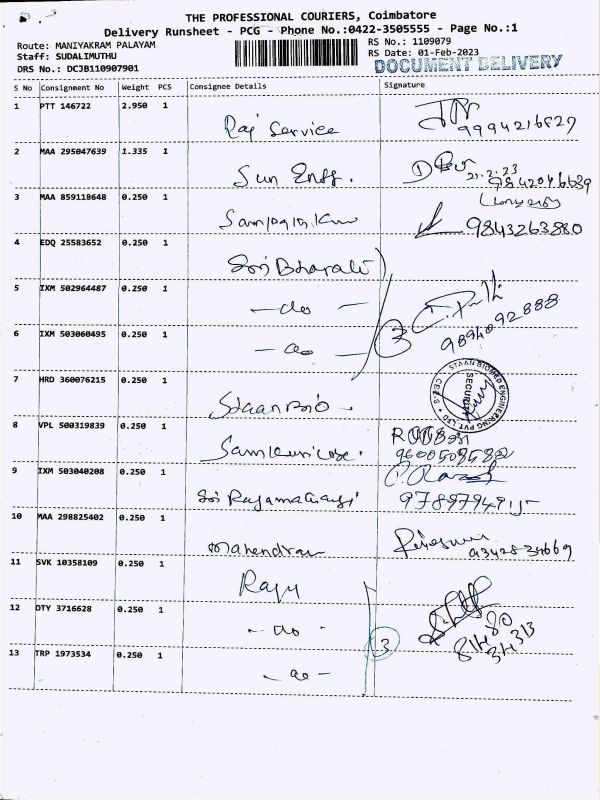 THE PROFESSIONAL COURIERS, Coimbatore
Delivery Runsheet - PCG - Phone No.:0422-3505555 - Page No.:1
Route: MANIYAKRAM PALAYAM
Staff: SUDALIMUTHU
DRS No.: DCJB110907901
RS No.: 1109079
RS Date: 01-Feb-2023
DOCUMENT DELIVERY
S No Consignment No Weight PCS Consignee Details Signature
1 PTT 146722 2.950 1 Raj Service 9994216827
2 MAA 295047639 1.335 1 Sun Engg. 21.2.23
9842046639
3 MAA 859118648 0.250 1 9843263880
4 EDQ 25583652 0.250 1 Sri Bharati
5 IXM 502964487 0.250 1 - do -
6 IXM 503060495 0.250 1 - do - 3 9894092888
7 HRD 360076215 0.250 1 Staan Bio STAAN BIOMED ENGINEERING PVT LTD SECURITY
8 VPL 500319839 0.250 1
9 IXM 503040208 0.250 1
10 MAA 298825402 0.250 1 Mahendran 9342834669
11 SVK 10358109 0.250 1 Raju
12 OTY 3716628 0.250 1 - do -
13 TRP 1973534 0.250 1 - do - 3